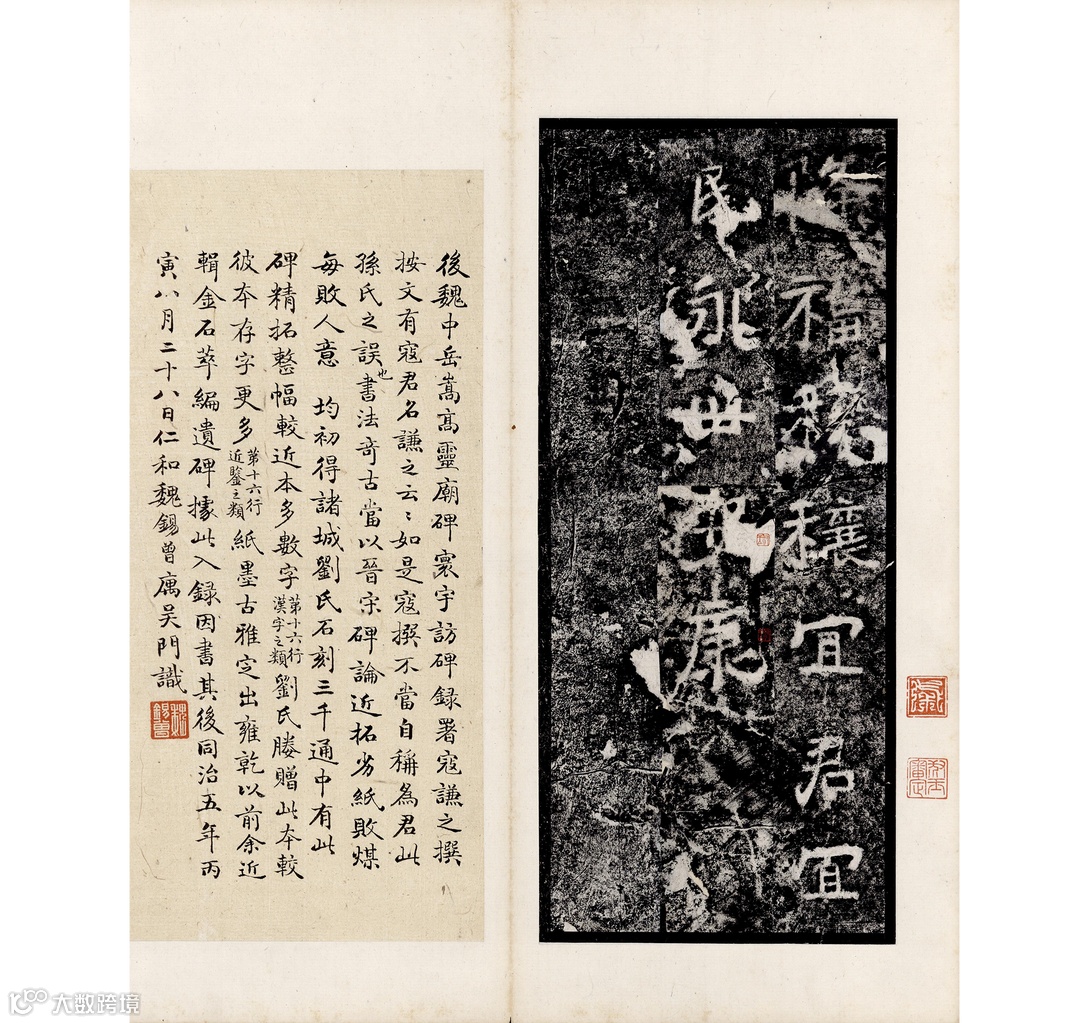 降福穰穰宜君宜
民永世安康
後魏中岳嵩高靈廟碑寰宇訪碑録署寇謙之撰
按文有寇君名謙之云〻如是寇撰不當自稱為君此
孫氏之誤也書法奇古當以晉宋碑論近拓劣紙敗煤
每敗人意 均初得諸城劉氏石刻三千通中有此
碑精拓整幅較近本多數字第十六行漢字之類劉氏媵贈此本較
彼本存字更多第十六行近鑒之類紙墨古雅定出雍乾以前余近
輯金石萃編遺碑據此入録因書其後同治五年丙
寅八月二十八日仁和魏錫曾寓吴門識
魏錫曾
大数跨境